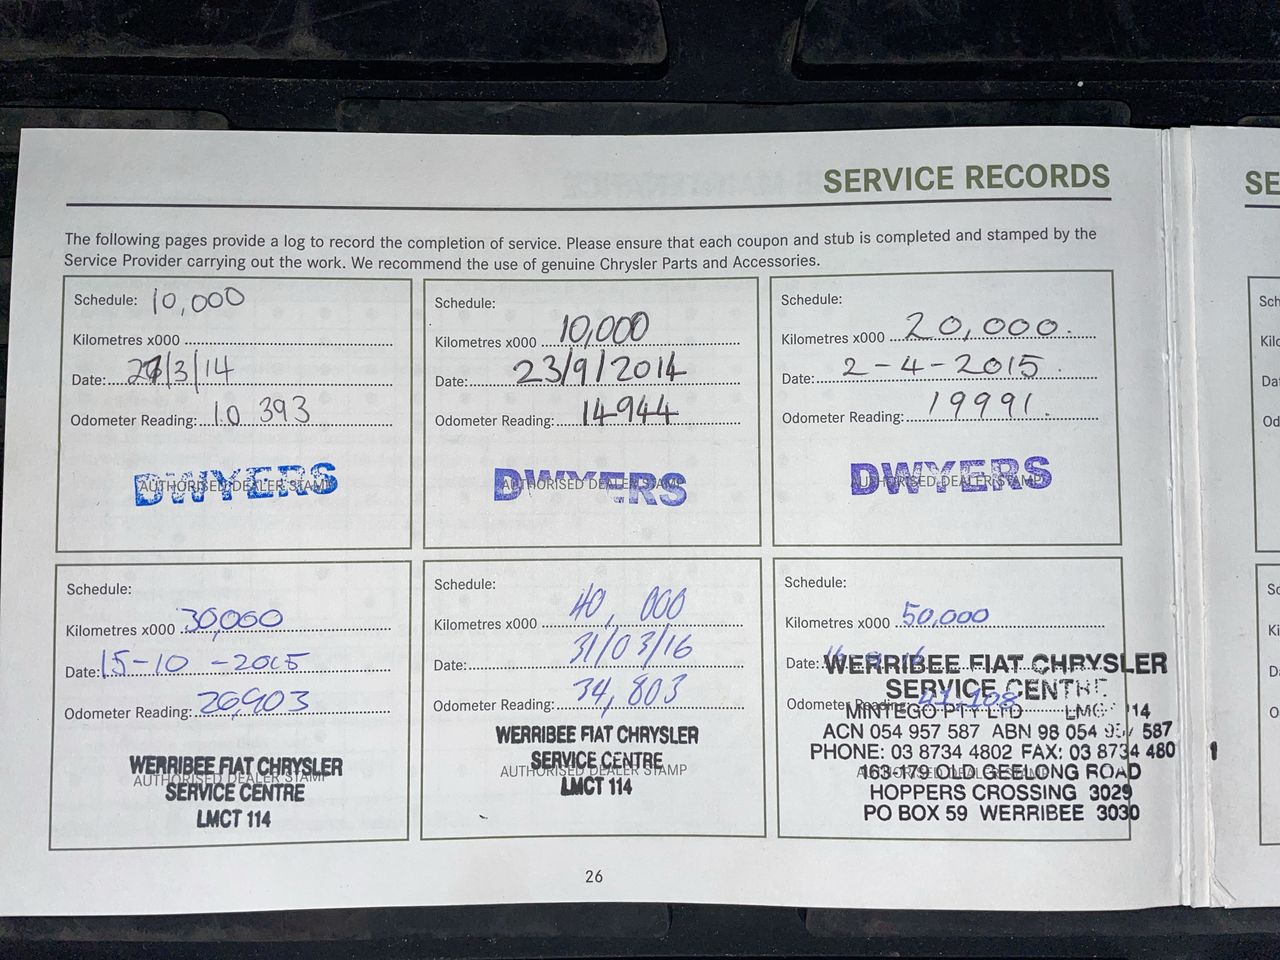 SERVICE RECORDS
SE
The following pages provide a log to record the completion of service. Please ensure that each coupon and stub is completed and stamped by the
Service Provider carrying out the work. We recommend the use of genuine Chrysler Parts and Accessories.
Schedule: 10,000
Kilometres x000
Date: 27/3/14
Odometer Reading: 10 393
AUTHORISED DEALER STAMP
DWYERS
Schedule:
Kilometres x000 10,000
Date: 23/9/2014
Odometer Reading: 14944
AUTHORISED DEALER STAMP
DWYERS
Schedule:
Kilometres x000 20,000.
Date: 2-4-2015.
Odometer Reading: 19991.
AUTHORISED DEALER STAMP
DWYERS
Schedule:
Kilometres x000 30,000
Date: 15-10-2015
Odometer Reading: 26,903
AUTHORISED DEALER STAMP
WERRIBEE FIAT CHRYSLER
SERVICE CENTRE
LMCT 114
Schedule:
Kilometres x000 40,000
Date: 31/03/16
Odometer Reading: 34,803
AUTHORISED DEALER STAMP
WERRIBEE FIAT CHRYSLER
SERVICE CENTRE
LMCT 114
Schedule:
Kilometres x000 50,000
Date:
Odometer Reading: 41,108
AUTHORISED DEALER STAMP
WERRIBEE FIAT CHRYSLER
SERVICE CENTRE
MINTEGO PTY LTD LMCT 114
ACN 054 957 587 ABN 98 054 957 587
PHONE: 03 8734 4802 FAX: 03 8734 480
163-179 OLD GEELONG ROAD
HOPPERS CROSSING 3029
PO BOX 59 WERRIBEE 3030
26
Sch
Kil
Da
Od
Sc
Ki
D
O